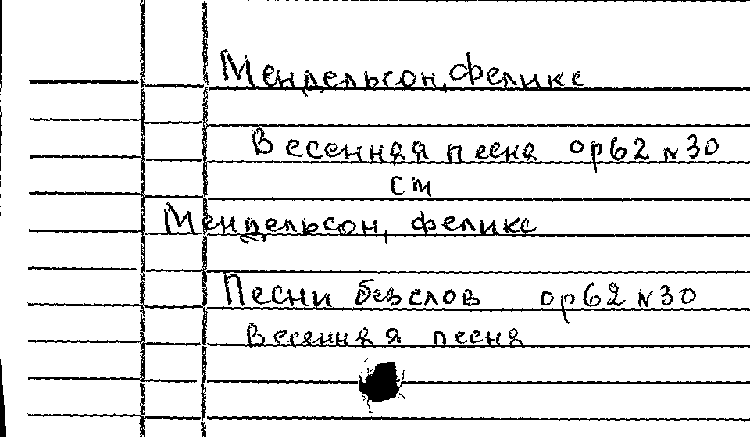 Мендельсон, Феликс
Весенная песня op62 №30
см
Мендельсон, Феликс
Песни без слов op62 №30
Весенная песня